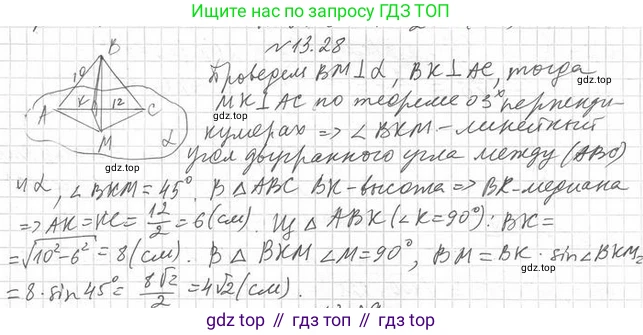 Ищите нас по запросу ГДЗ ТОП
№13.28
B
10
A
K
12
C
M
α
gdz.top
Проведем BM⊥α, BK⊥AC, тогда
MK⊥AC по теореме о 3ˣ перпенди-
кулярах => ∠BKM - линейный
угол двугранного угла между (ABC)
и α, ∠BKM = 45°. В △ABC BK - высота => BK - медиана
=> AK = KC = 12/2 = 6(см). Из △ABK (∠K = 90°): BK =
= √10²-6² = 8(см). В △BKM ∠M = 90°, BM = BK · sin∠BKM =
= 8 · sin45° = 8√2/2 = 4√2(см).
gdz.top
gdz.top
gdz.top
gdz.top
gdz.top
gdz.top